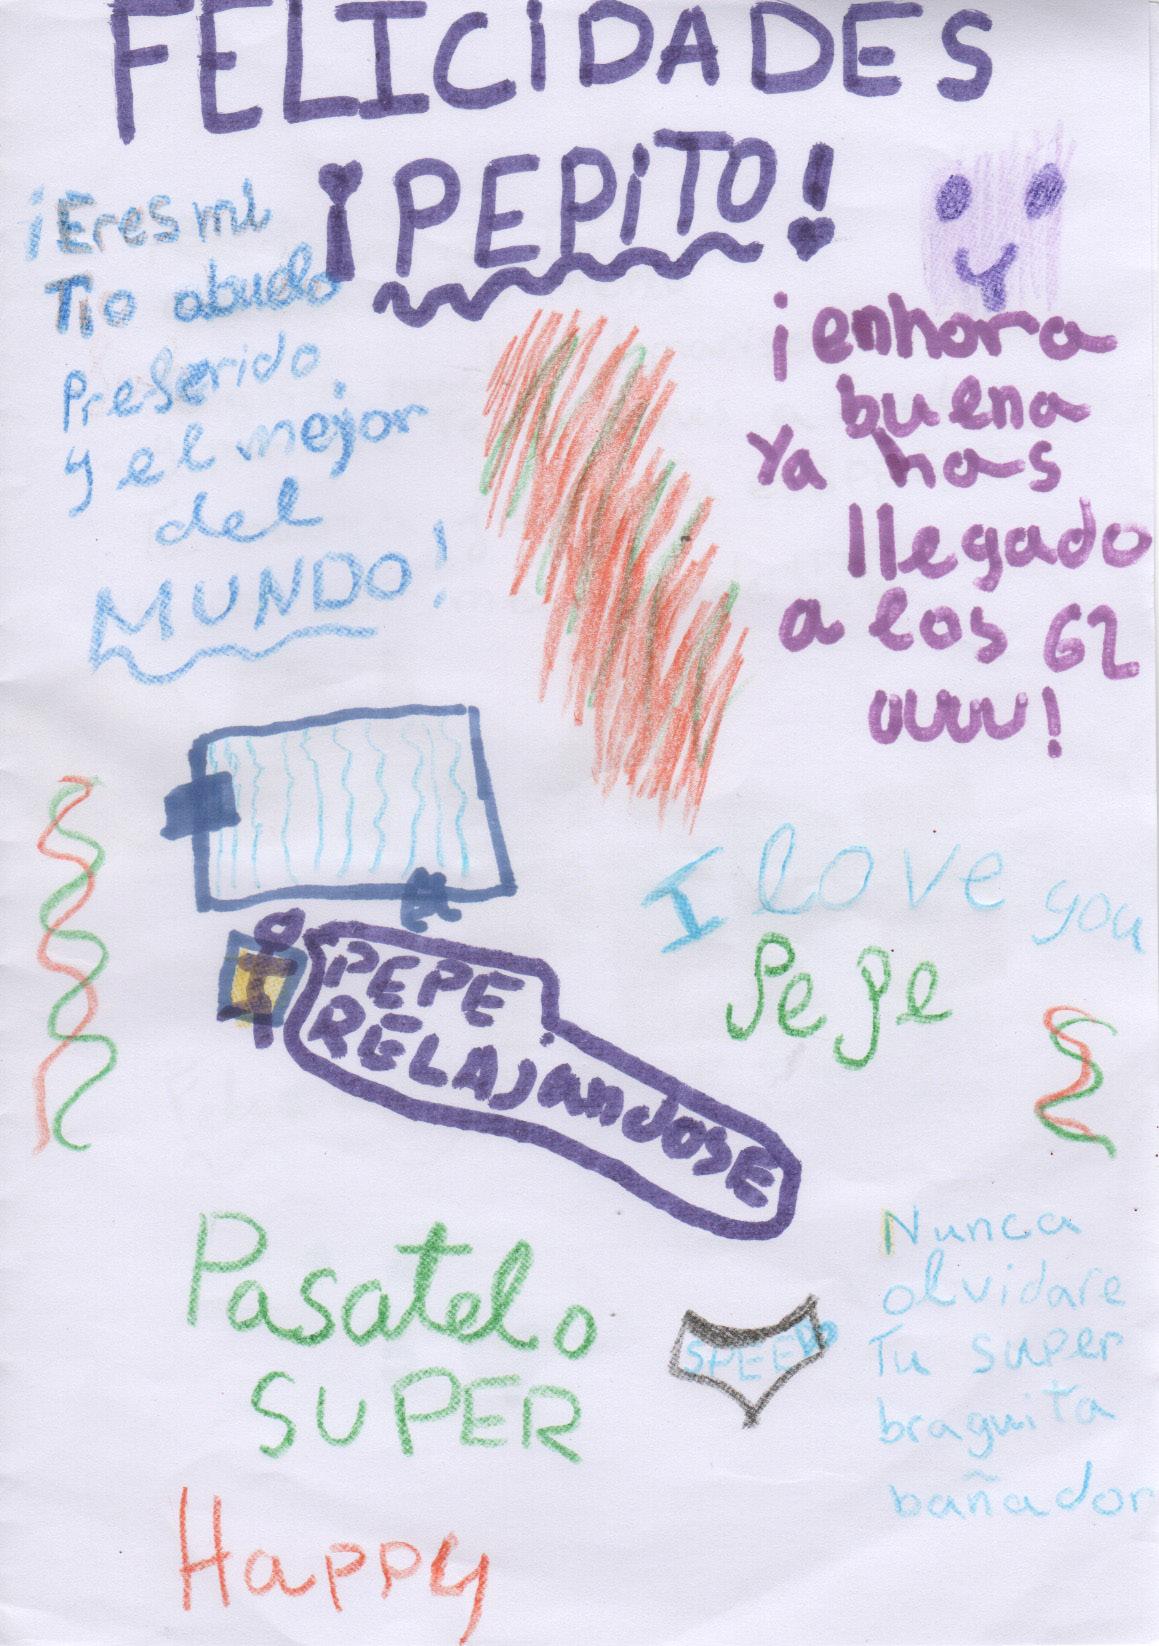 FELICIDADES
¡PEPiTO!
¡Eres mi
Tio abuelo
Preferido
y el mejor
del
MUNDO!
¡enhora
buena
Ya has
llegado
a los 62
uuuu!
I love you
Pepe
PEPE
RELAJandOSE
Pasatelo
SUPER
SPEEDO
Nunca
olvidare
Tu super
braguita
bañador
Happy